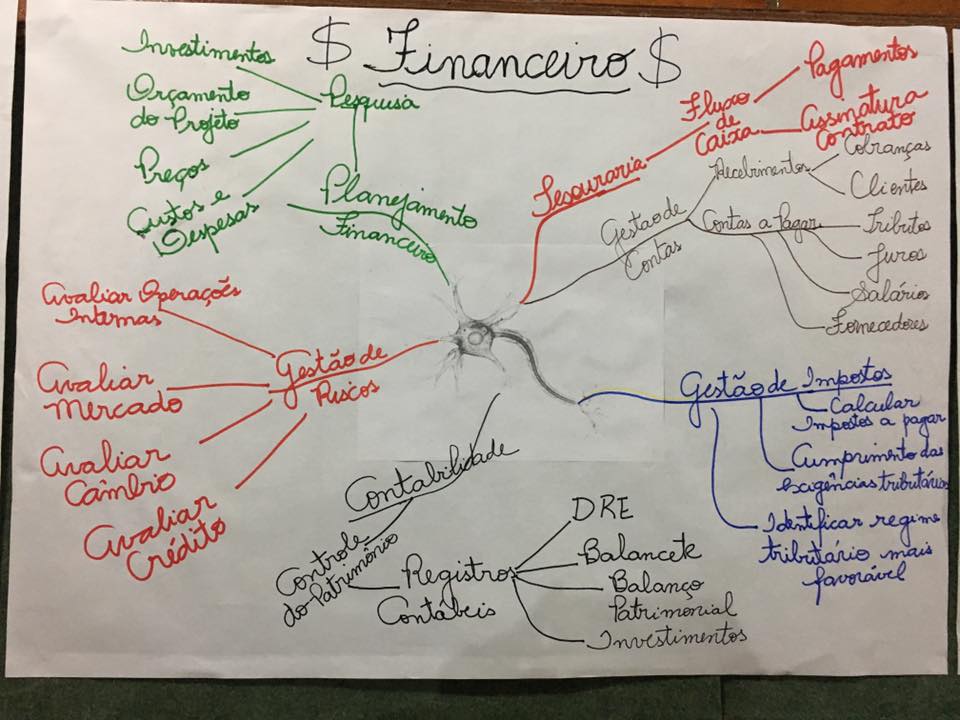 $ Financeiro $
Investimentos
Orçamento
do Projeto
Preços
Custos e
Despesas
Pesquisa
Planejamento
Financeiro
Tesouraria
Fluxo
de
Caixa
Pagamentos
Assinatura
Contrato
Gestão de
Contas
Recebimentos
Cobranças
Clientes
Contas a Pagar
Tributos
Juros
Salários
Fornecedores
Avaliar Operações
Internas
Avaliar
Mercado
Avaliar
Câmbio
Avaliar
Crédito
Gestão de
Riscos
Gestão de Impostos
Calcular
Impostos a pagar
Cumprimento das
Exigências tributárias
Identificar regime
tributário mais
favorável
Contabilidade
Controle
do Patrimônio
Registros
Contábeis
DRE
Balancete
Balanço
Patrimonial
Investimentos